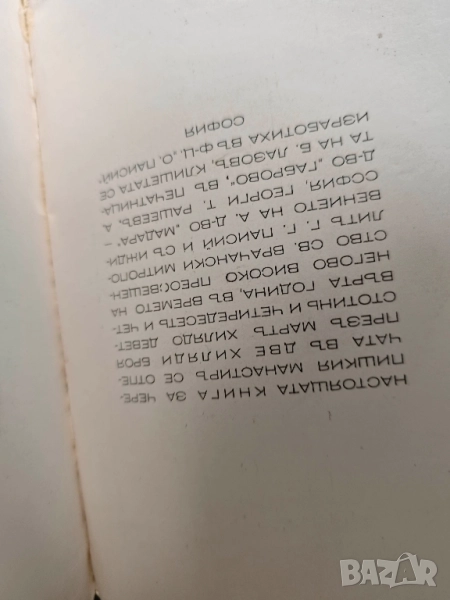 НАСТОЯЩАТА КНИГА ЗА ЧЕРЕ-
ПИШКИЯ МАНАСТИРЪ СЕ ОТПЕ-
ЧАТА ВЪ ДВЕ ХИЛЯДИ БРОЯ
ПРЕЗЪ МАРТЪ ХИЛЯДО ДЕВЕТ-
СТОТИНЪ И ЧЕТИРЕДЕСЕТЬ И ЧЕТ-
ВЪРТА ГОДИНА, ВЪ ВРЕМЕТО НА
НЕГОВО ВИСОКО ПРЕОСВЕЩЕН-
СТВО СВ. ВРАЧАНСКИ МИТРОПО-
ЛИТЪ Г. Г. ПАИСИЙ И СЪ ИНДИ-
ВЕНИЕТО НА А. Д-ВО „МАДАРА“ –
СОФИЯ, ГЕОРГИ Т. РАШЕЕВЪ, А.
Д-ВО „ГАБРОВО“, ВЪ ПЕЧАТНИЦА-
ТА НА Б. ЛАЗОВЪ, КЛИШЕТАТА СЕ
ИЗРАБОТИХА ВЪ Ф-Ц. „О. ПАИСИЙ“
СОФИЯ
bazar.bg